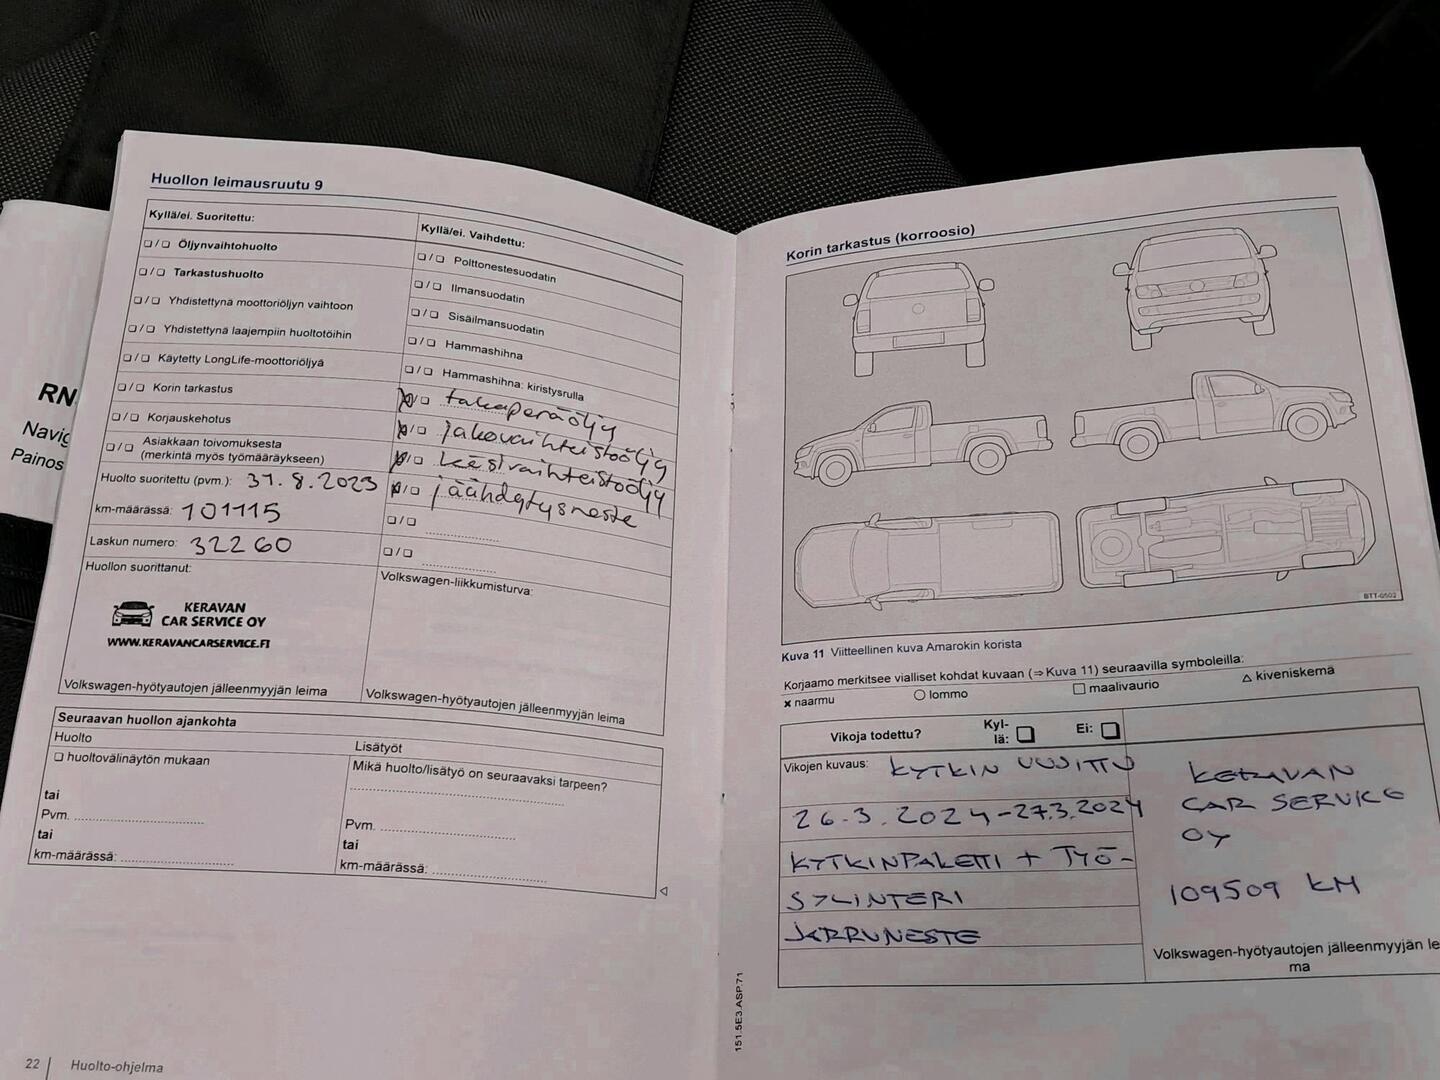 RN
Navig
Painos
Huollon leimausruutu 9
Kyllä/ei. Suoritettu:
❏ / ❏ Öljynvaihtohuolto
❏ / ❏ Tarkastushuolto
❏ / ❏ Yhdistettynä moottoriöljyn vaihtoon
❏ / ❏ Yhdistettynä laajempiin huoltotöihin
❏ / ❏ Käytetty LongLife-moottoriöljyä
❏ / ❏ Korin tarkastus
❏ / ❏ Korjauskehotus
❏ / ❏ Asiakkaan toivomuksesta
(merkintä myös työmääräykseen)
Huolto suoritettu (pvm.): 31.8.2023
km-määrässä: 101115
Laskun numero: 32260
Huollon suorittanut:
KERAVAN
CAR SERVICE OY
WWW.KERAVANCARSERVICE.FI
Volkswagen-hyötyautojen jälleenmyyjän leima
Kyllä/ei. Vaihdettu:
❏ / ❏ Polttonestesuodatin
❏ / ❏ Ilmansuodatin
❏ / ❏ Sisäilmansuodatin
❏ / ❏ Hammashihna
❏ / ❏ Hammashihna: kiristysrulla
x/❏ takaperäöljy
x/❏ jakovaihteistoöljy
x/❏ käsivaihteistoöljy
x/❏ jäähdytysneste
❏ / ❏
❏ / ❏
Volkswagen-liikkumisturva:
Volkswagen-hyötyautojen jälleenmyyjän leima
Seuraavan huollon ajankohta
Huolto
❏ huoltovälinäytön mukaan
tai
Pvm.
tai
km-määrässä:
Lisätyöt
Mikä huolto/lisätyö on seuraavaksi tarpeen?
Pvm.
tai
km-määrässä:
22 | Huolto-ohjelma
Korin tarkastus (korroosio)
BTT-0502
Kuva 11 Viitteellinen kuva Amarokin korista
Korjaamo merkitsee vialliset kohdat kuvaan (⇒ Kuva 11) seuraavilla symboleilla:
x naarmu ○ lommo □ maalivaurio △ kiveniskemä
Vikoja todettu? Kyl-
lä: ❏ Ei: ❏
Vikojen kuvaus: KYTKIN UUSITTU
26.3.2024-27.3.2024
KYTKINPAKETTI + TYÖ-
SYLINTERI
JARRUNESTE
KERAVAN
CAR SERVICE
OY
109509 KM
Volkswagen-hyötyautojen jälleenmyyjän le
ma
151.5E3.ASP.71